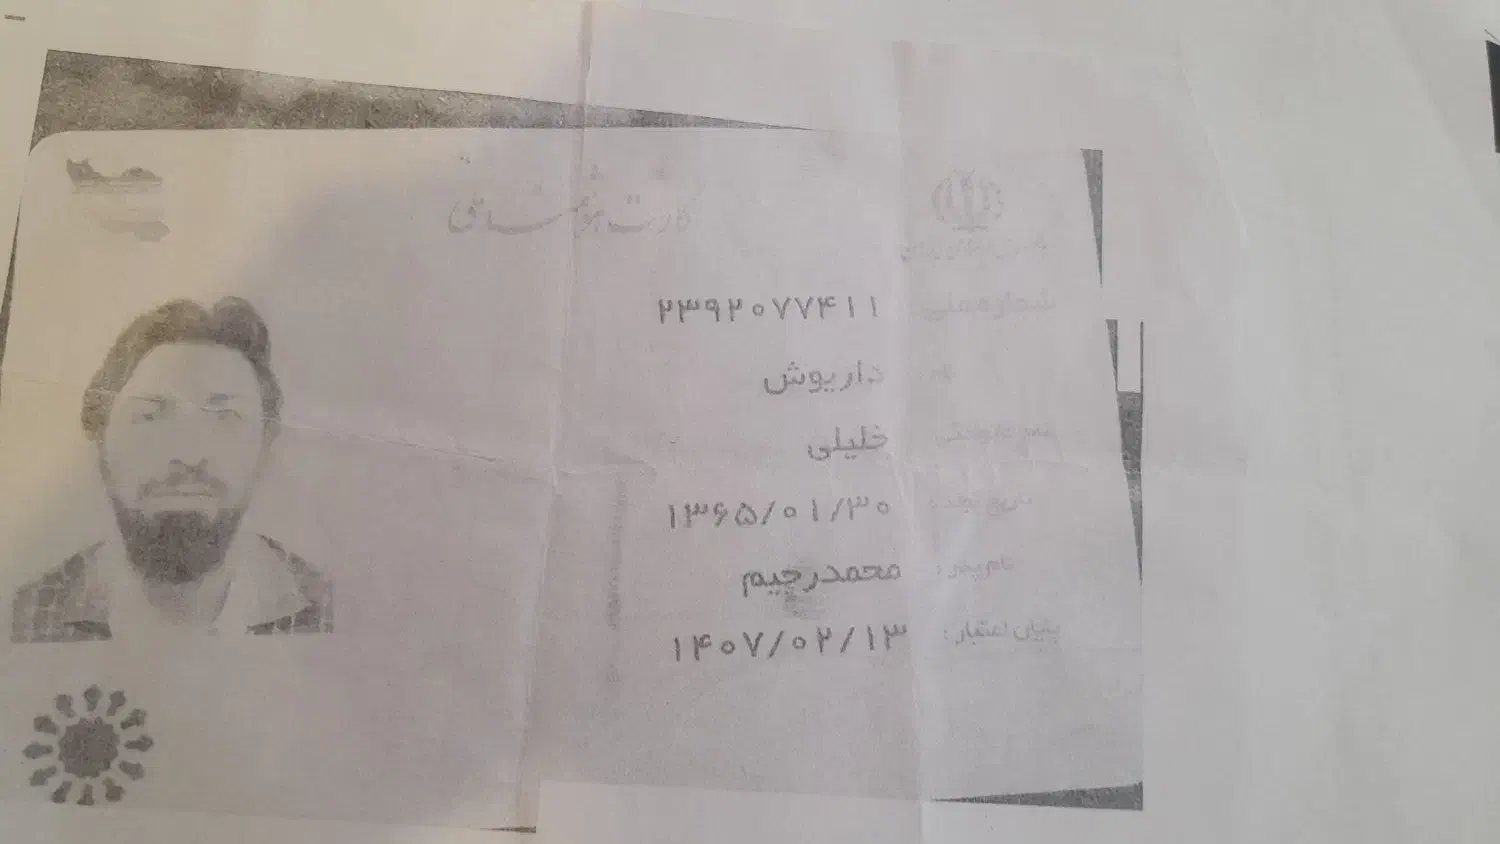 کارت هوشمند ملی
جمهوری اسلامی ایران
شماره ملی ۲۳۹۲۰۷۷۴۱۱
نام: داریوش
نام خانوادگی: خلیلی
تاریخ تولد: ۱۳۶۵/۰۱/۳۰
نام پدر: محمدرحیم
پایان اعتبار: ۱۴۰۷/۰۲/۱۳